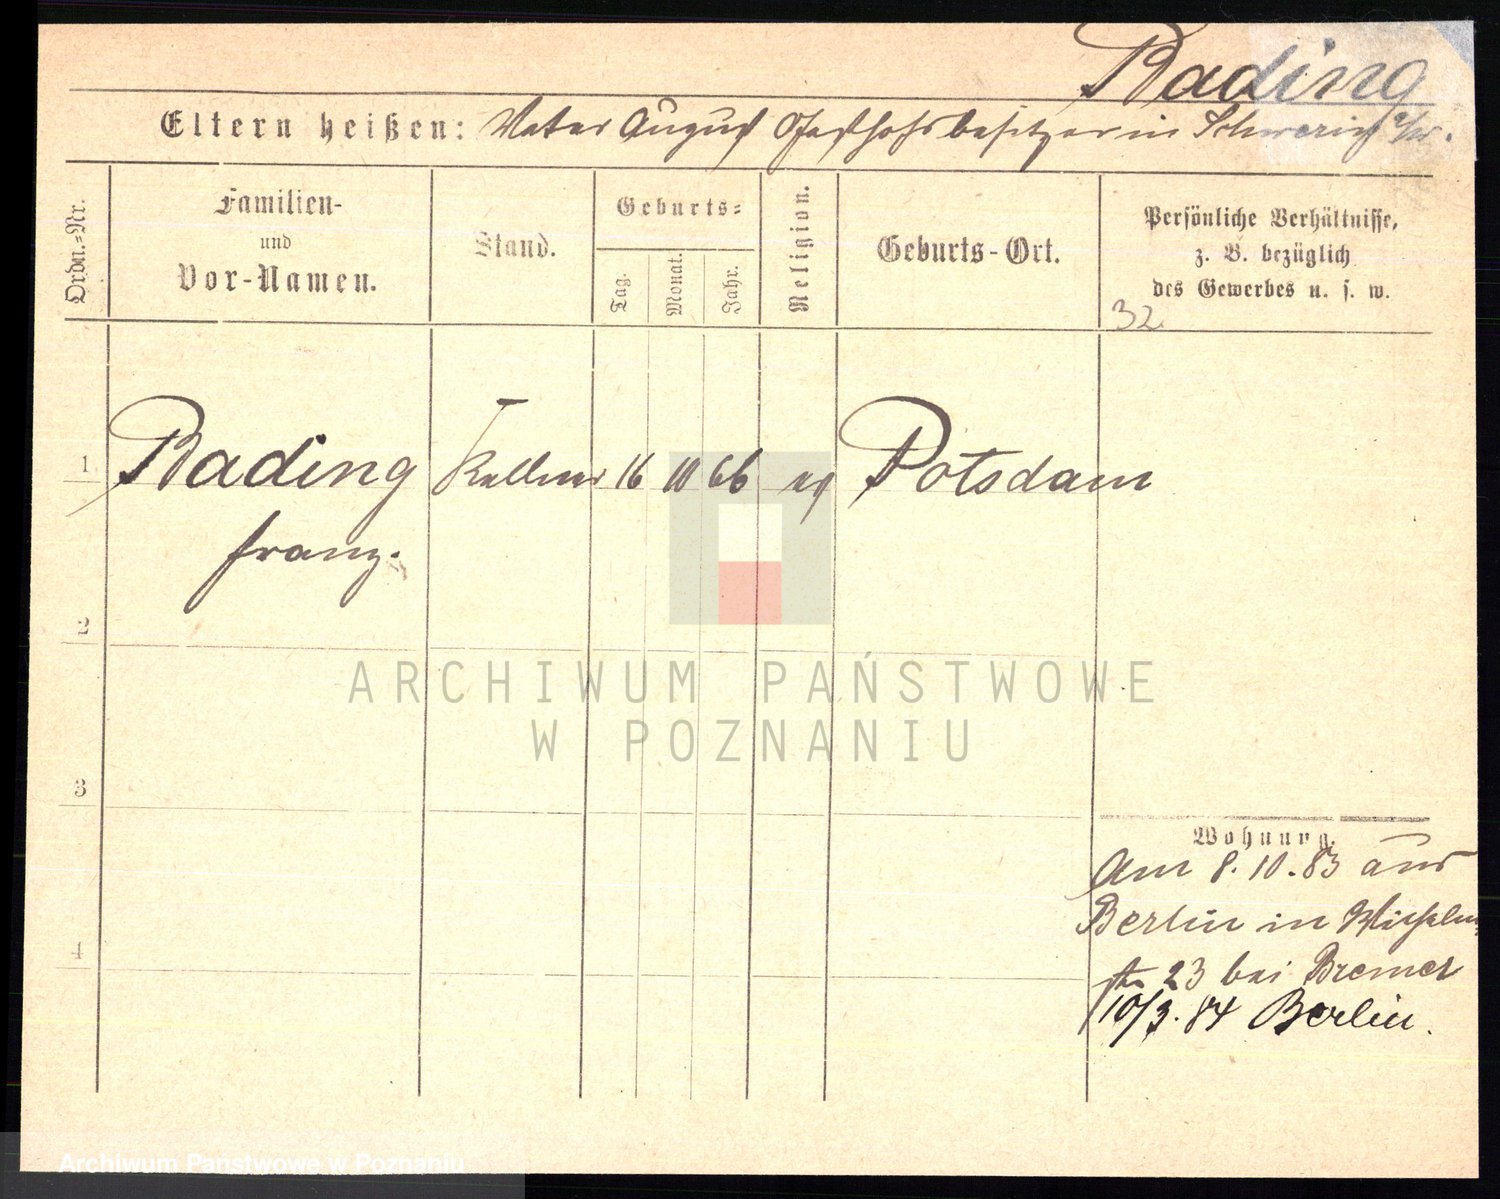 Bading
Eltern heißen: Vater August Gasthofsbesitzer in Schwerin a/W.
Ordn.=Nr.
Familien-
und
Vor-Namen.
Stand.
Geburts=
Tag.
Monat.
Jahr.
Religion.
Geburts-Ort.
Persönliche Verhältnisse,
z. B. bezüglich
des Gewerbes u. s. w.
32
1 Bading Kellner 16 10 66 ev Potsdam
Franz.
2
3
4
Wohnung.
Am 8.10.83 aus
Berlin in Wilhelm
str 23 bei Bremer
10/3.84 Berlin.
ARCHIWUM PAŃSTWOWE
W POZNANIU
Archiwum Państwowe w Poznaniu